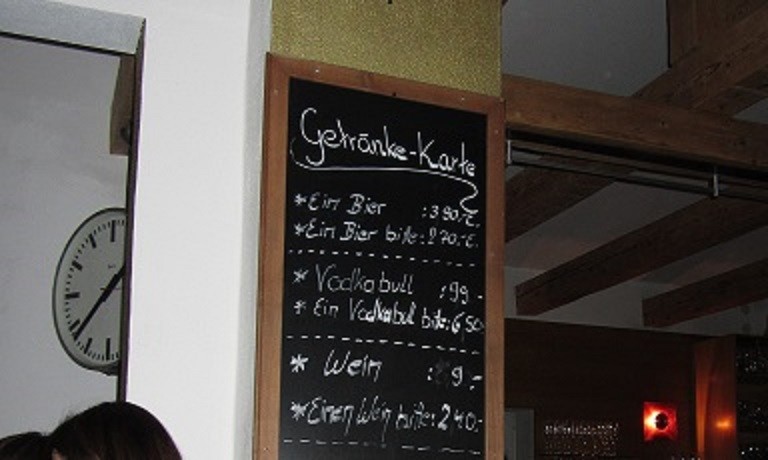 Getränke-Karte
*Ein Bier :3 90.-€.
*Ein Bier bitte: 2 70.-€.
* Vodkabull :99.-
* Ein Vodkabull bitte: 6,50
* Wein : 9.-
*Einen Wein bitte: 2 40.-